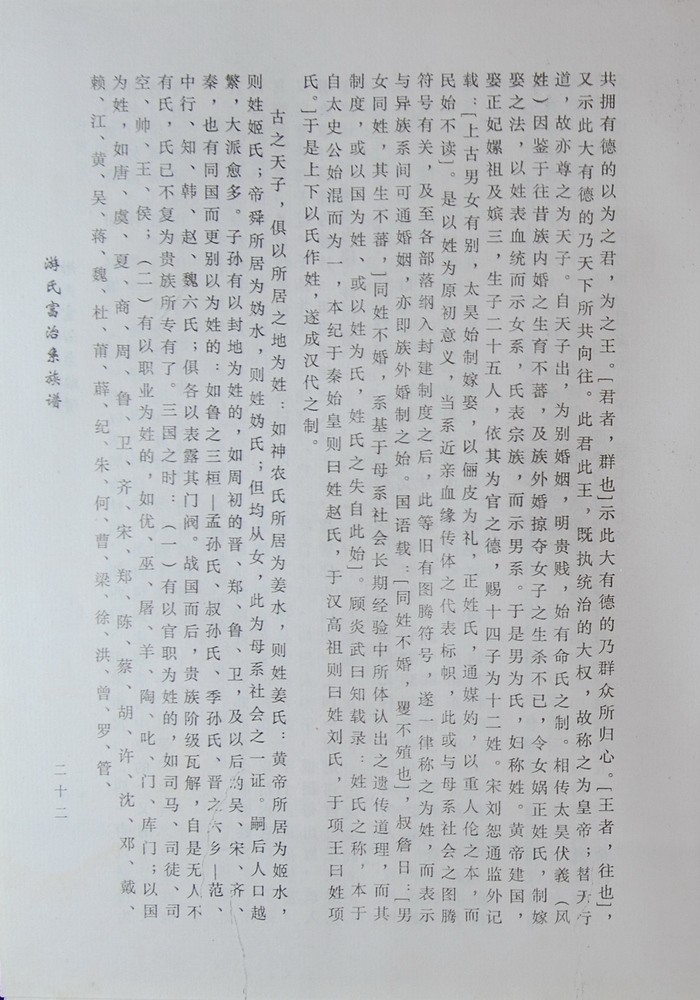 共拥有德的以为之君，为之王。［君者，群也］示此大有德的乃群众所归心。［王者，往也］，
又示此大有德的乃天下所共向往。此君此王，既执统治的大权，故称之为皇帝；替天行
道，故亦尊之为天子。自天子出，为别婚姻，明贵贱，始有命氏之制。相传太昊伏義（风
姓）因鉴于往昔族内婚之生育不蕃，及族外婚掠夺女子之生杀不已，令女娲正姓氏，制嫁
娶之法，以姓表血统而示女系，氏表宗族，而示男系。于是男为氏，妇称姓。黄帝建国，
娶正妃嫘祖及嫔三，生子二十五人，依其为官之德，赐十四子为十二姓。宋刘恕通监外记
载：［上古男女有别，太昊始制嫁娶，以俪皮为礼，正姓氏，通媒妁，以重人伦之本，而
民始不读］。是以姓为原初意义，当系近亲血缘传体之代表标帜，此或与母系社会之图腾
符号有关，及至各部落纳入封建制度之后，此等旧有图腾符号，遂一律称之为姓，而表示
与异族系间可通婚姻，亦即族外婚制之始。国语载：［同姓不婚，矍不殖也］，叔詹日：［男
女同姓，其生不蕃，］同姓不婚，系基于母系社会长期经验中所体认出之遗传道理，而其
制度，或以国为姓、或以姓为氏，姓氏之失自此始］。顾炎武曰知载录：姓氏之称，本于
自太史公始混而为一，本纪于秦始皇则曰姓赵氏，于汉高祖则曰姓刘氏，于项王曰姓项
氏。］于是上下以氏作姓，遂成汉代之制。
古之天子，俱以所居之地为姓：如神农氏所居为姜水，则姓姜氏：黄帝所居为姬水，
则姓姬氏；帝舜所居为妫水，则姓妫氏；但均从女，此为母系社会之一证。嗣后人口越
繁，大派愈多。子孙有以封地为姓的，如周初的晋、郑、鲁、卫，及以后的吴、宋、齐、
秦，也有同国而更别以为姓的：如鲁之三桓—孟孙氏、叔孙氏、季孙氏、晋之六乡—范、
中行、知、韩、赵、魏六氏；俱各以表露其门阀。战国而后，贵族阶级瓦解，自是无人不
有氏，氏已不复为贵族所专有了。三国之时：（一）有以官职为姓的，如司马、司徒、司
空、帅、王、侯；（二）有以职业为姓的，如优、巫、屠、羊、陶、叱、门、库门；以国
为姓，如唐、虞、夏、商、周、鲁、卫、齐、宋、郑、陈、蔡、胡、许、沈、邓、戴、
赖、江、黄、吴、蒋、魏、杜、莆、薛、纪、朱、何、曹、梁、徐、洪、曾、罗、管、
游氏富治系族谱
二十二